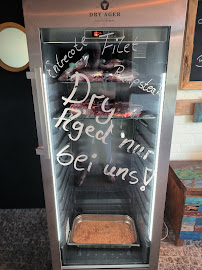 DRY AGER
Entrecote Filet Rumpsteak
Dry
Aged nur
bei uns!